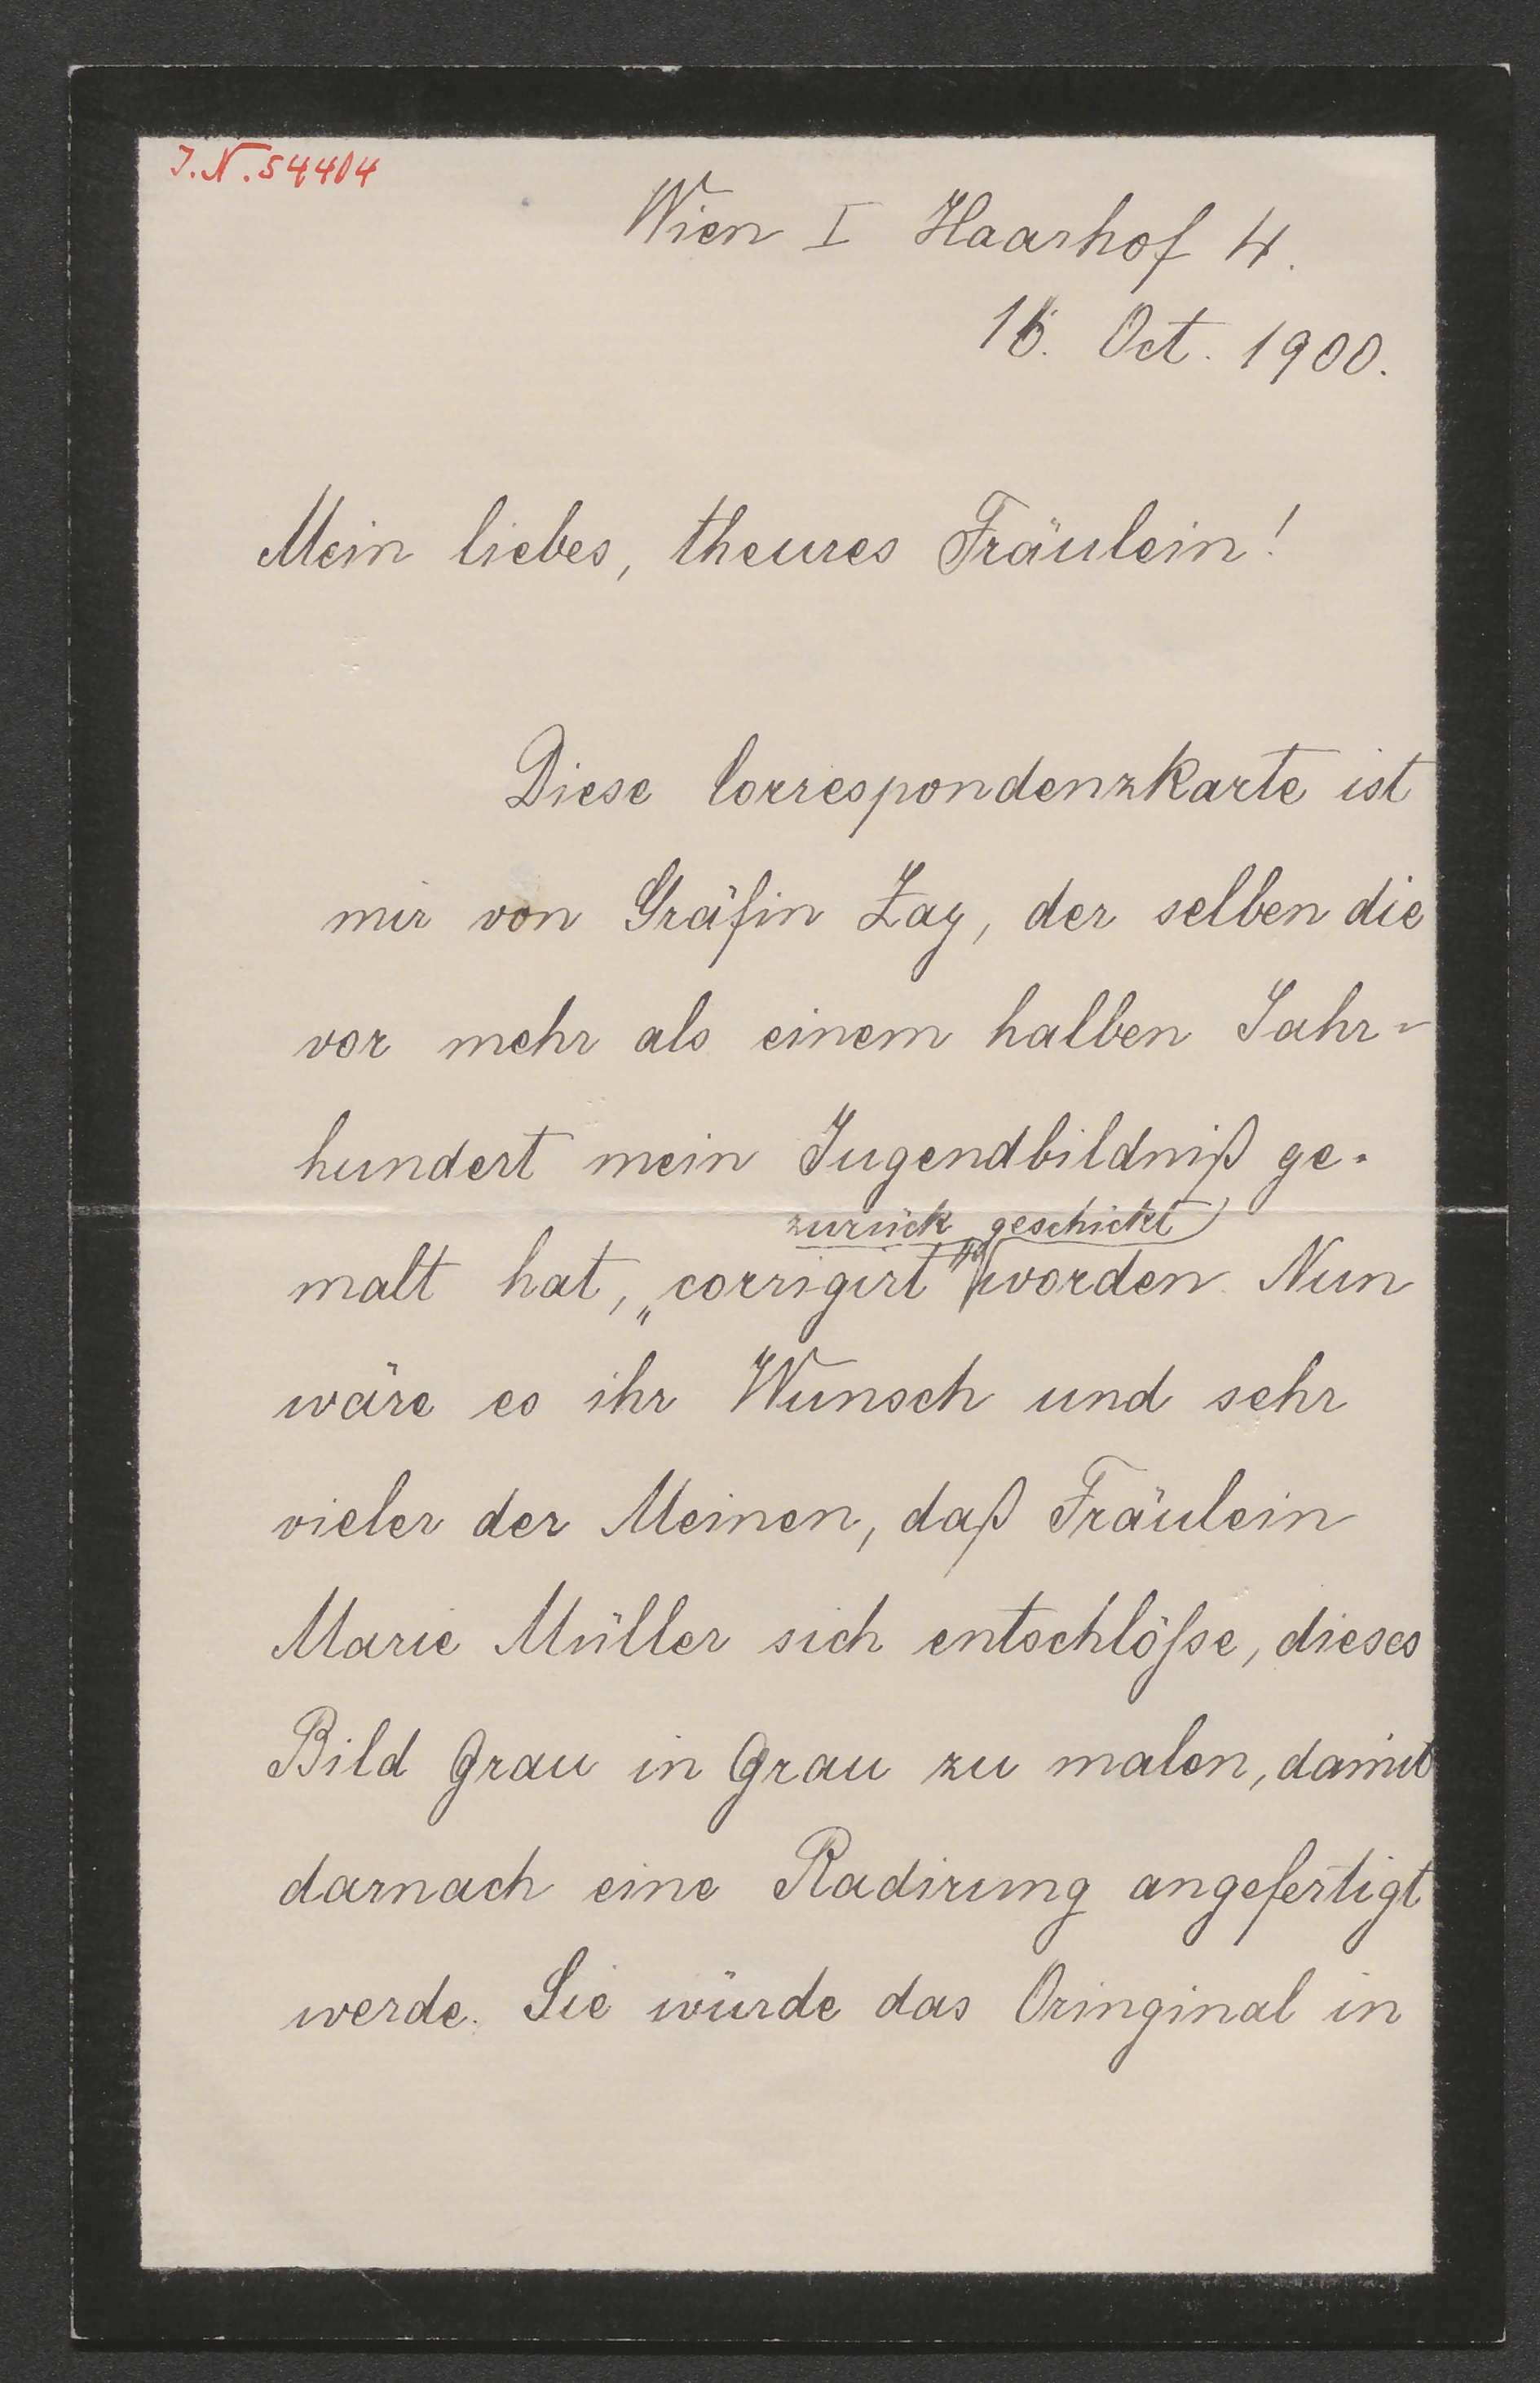 J.N. 54404
Wien I Haarhof 4.
16. Oct. 1900.
Mein liebes, theures Fräulein!
Diese Correspondenzkarte ist
mir von Gräfin Zay, der selben die
vor mehr als einem halben Jahr-
hundert mein Jugendbildniß ge-
zurück geschickt
malt hat, „corrigirt“ worden. Nun
wäre es ihr Wunsch und sehr
vieler der Meinen, daß Fräulein
Marie Müller sich entschlösse, dieses
Bild Grau in Grau zu malen, damit
darnach eine Radirung angefertigt
werde. Sie würde das Oringinal in